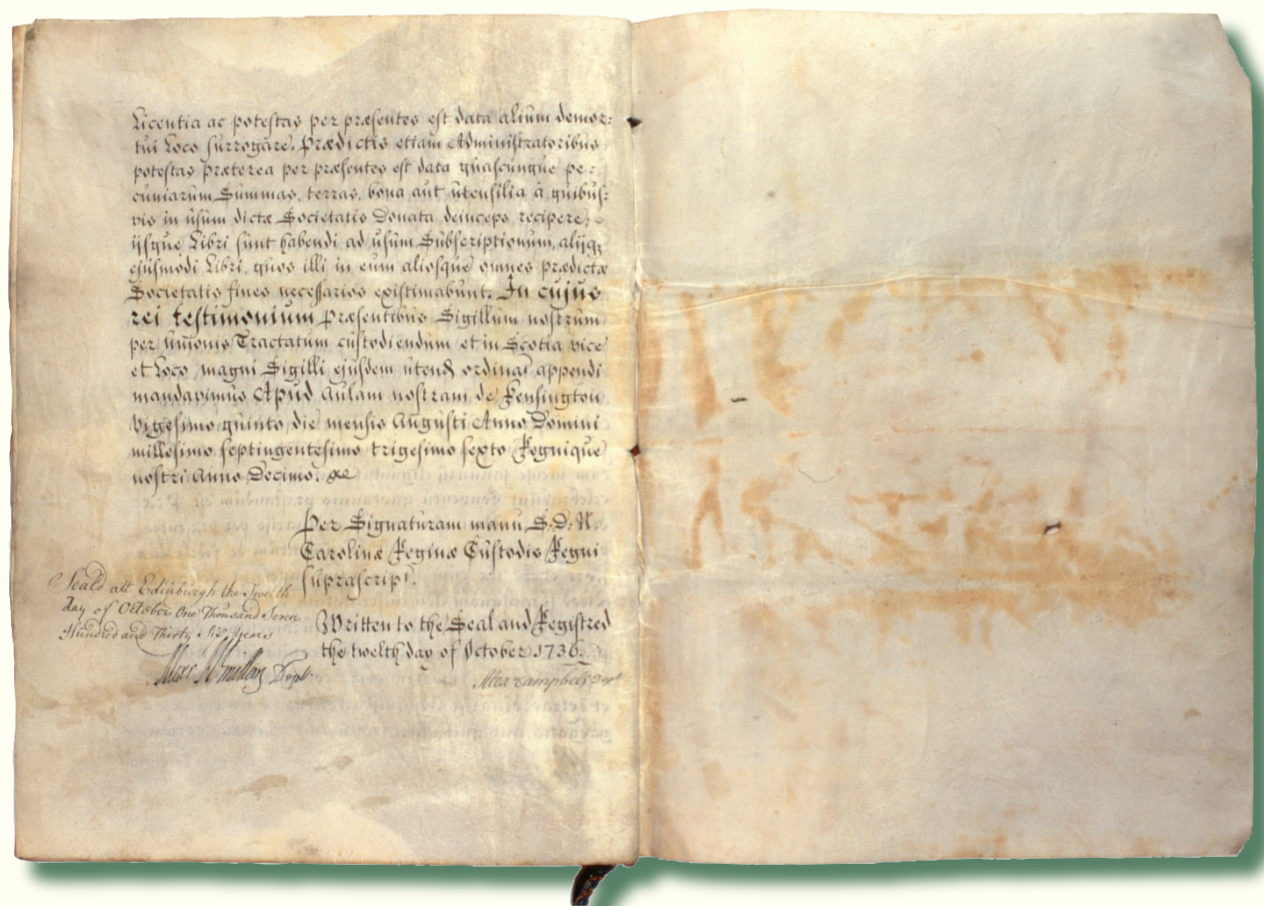 Licentia ac potestas per præsentes est data alium demor:
tui Loco surrogare. Prædictis etiam Administratoribus
potestas præterea per præsentes est data quascunque pe:
cuniarum Summas, terras, bona aut utensilia à quibus:
vis in usum dictæ Societatis Donata deinceps recipere,
ijsque Libri sunt habendi ad usum Subscriptionum, alijq;
ejusmodi Libri, quos illi in eum aliosque omnes prædictæ
Societatis fines necessarios existimabunt. In cujus
rei testimonium Præsentibus Sigillum nostrum
per Unionis Tractatum custodiendum et in Scotia vice
et Loco magni Sigilli ejusdem utend ordinat appendi
mandavimus Apud Aulam nostram de Kensington
Vigesimo quinto die mensis Augusti Anno Domini
millesimo septingentesimo trigesimo sexto Regnique
nostri Anno Decimo.
Per Signaturam manu S: D: N.
Carolinæ Reginæ Custodis Regni
suprascript.
Seald att Edinburgh the Twelth
day of October One Thousand Seven
Hundred and Thirty Six years
Alexr McMillan Dept.
Written to the Seal and Registred
the twelth day of October 1736.
Alex Campbell